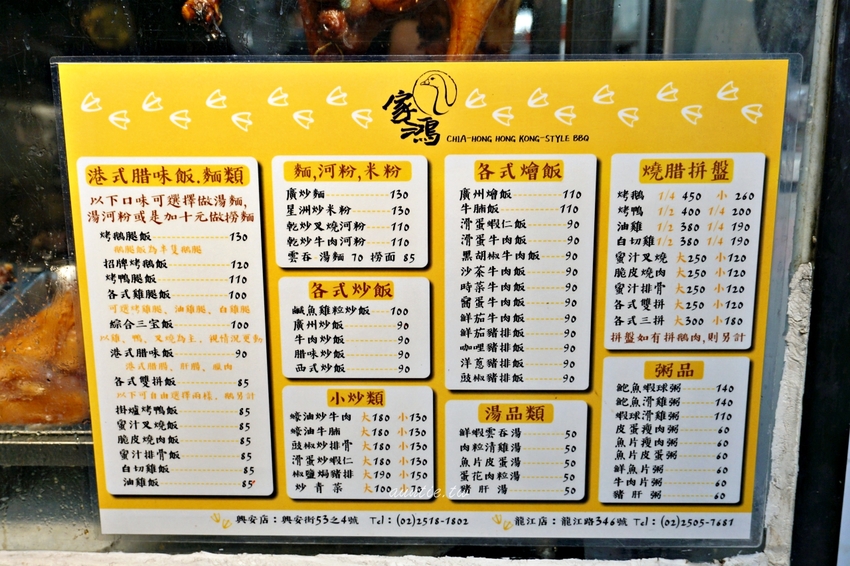 家鴻
CHIA-HONG HONG KONG-STYLE BBQ
港式腊味飯.麵類
以下口味可選擇做湯麵,
湯河粉或是加十元做撈麵
烤鵝腿飯 130
鵝腿飯為半隻鵝腿
招牌烤鵝飯 120
烤鴨腿飯 110
各式雞腿飯 100
可選烤雞腿、油雞腿、白雞腿
綜合三宝飯 100
以雞、鴨、叉燒為主、視情況更動
港式腊味飯 90
港式腊腸、肝腸、臘肉
各式雙拼飯 85
以下可自由選擇兩樣、鵝另計
掛爐烤鴨飯 85
蜜汁叉燒飯 85
脆皮燒肉飯 85
蜜汁排骨飯 85
白切雞飯 85
油雞飯 85
麵,河粉,米粉
廣炒麵 130
星洲炒米粉 130
乾炒叉燒河粉 110
乾炒牛肉河粉 110
雲吞湯麵 70 撈面 85
各式炒飯
鹹魚雞粒炒飯 100
廣州炒飯 90
牛肉炒飯 90
腊味炒飯 90
西式炒飯 90
小炒類
蠔油炒牛肉 大180 小130
蠔油牛腩 大180 小130
豉椒炒排骨 大180 小130
滑蛋炒蝦仁 大180 小130
椒鹽焗豬排 大190 小150
炒青菜 大100
各式燴飯
廣州燴飯 110
牛腩飯 110
滑蛋蝦仁飯 90
滑蛋牛肉飯 90
黑胡椒牛肉飯 90
沙茶牛肉飯 90
時菜牛肉飯 90
窩蛋牛肉飯 90
鮮茄牛肉飯 90
鮮茄豬排飯 90
咖哩豬排飯 90
洋蔥豬排飯 90
豉椒豬排飯 90
湯品類
鮮蝦雲吞湯 50
肉粒清雞湯 50
魚片皮蛋湯 50
蛋花肉粒湯 50
豬肝湯 50
燒腊拼盤
烤鵝 1/4 450 小 260
烤鴨 1/2 400 1/4 200
油雞 1/2 380 1/4 190
白切雞 1/2 380 1/4 190
蜜汁叉燒 大250 小120
脆皮燒肉 大250 小120
蜜汁排骨 大250 小120
各式雙拼 大250 小120
各式三拼 大300 小180
拼盤如有拼鵝肉,則另計
粥品
鮑魚蝦球粥 140
鮑魚滑雞粥 140
蝦球滑雞粥 110
皮蛋瘦肉粥 60
魚片瘦肉粥 60
魚片皮蛋粥 60
鮮魚片粥 60
牛肉片粥 60
豬肝粥 60
興安店:興安街53之4號 Tel:(02)2518-1802
龍江店:龍江路346號 Tel:(02)2505-7681